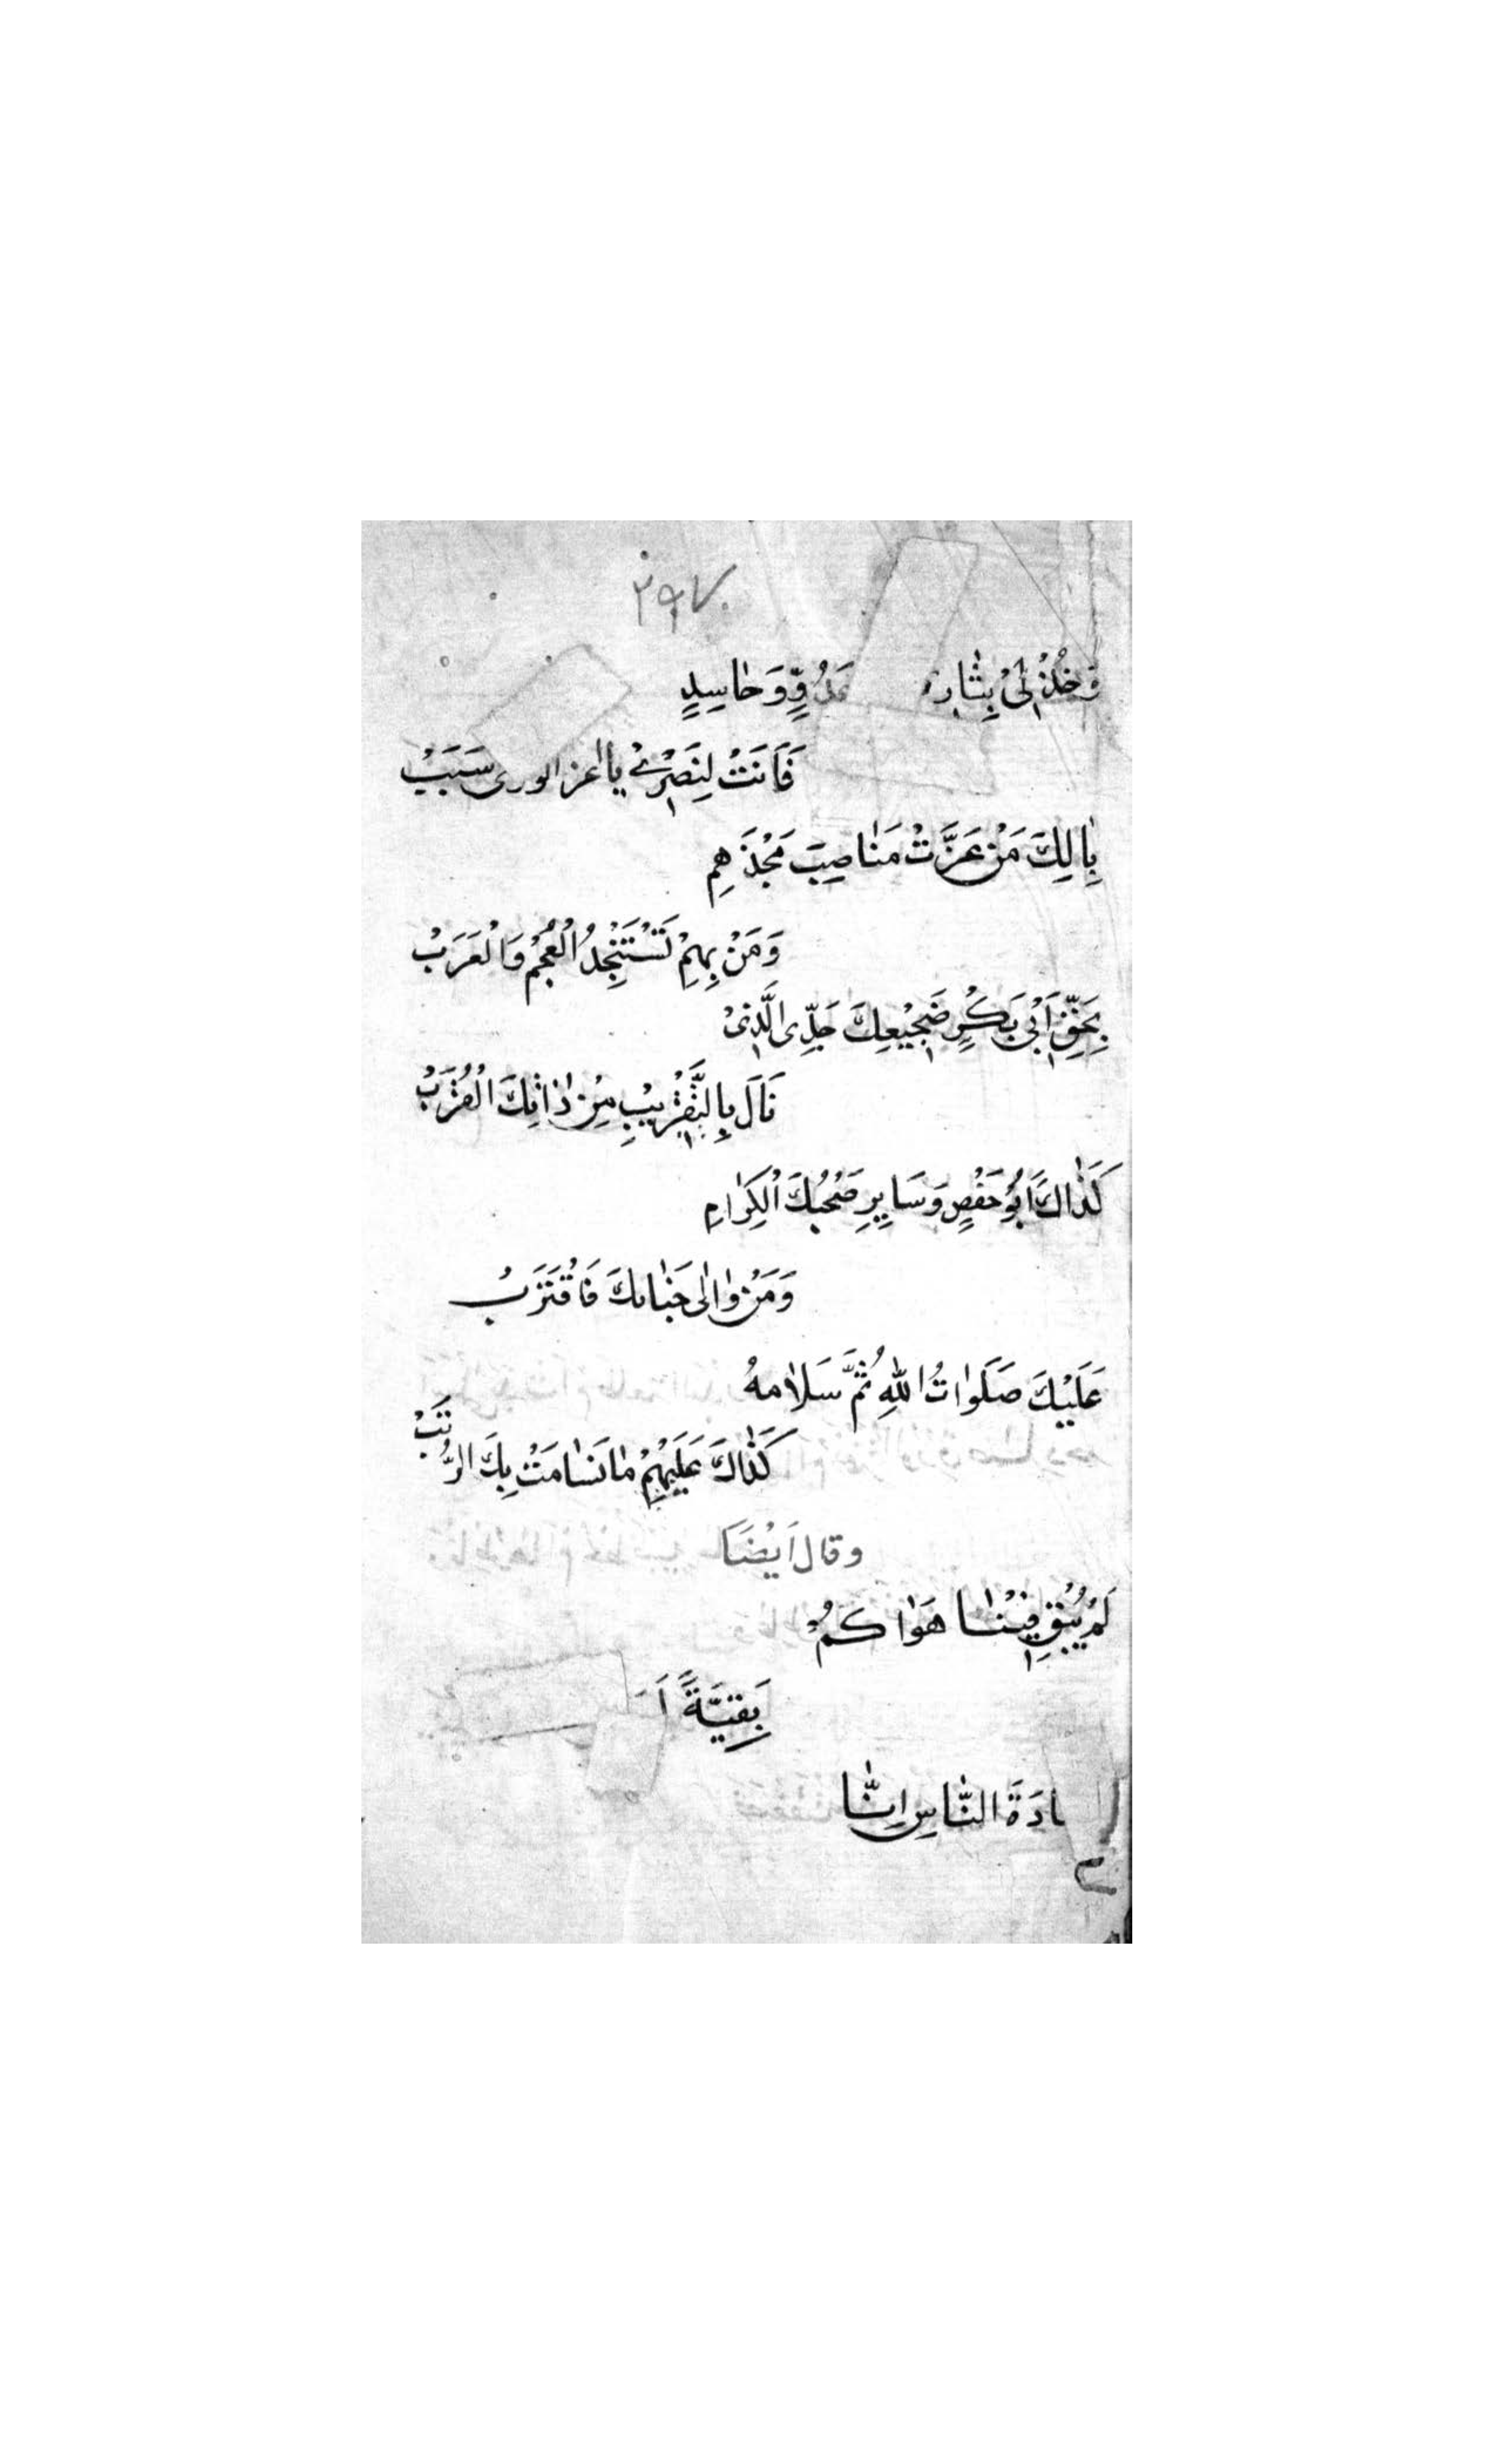 وَخُذْ لِيْ بِثَارِ عَدُوٍّ وَحَاسِدٍ
فَاَنْتَ لِنَصْرِيْ يا اعز الورى سَبَبْ
بِاٰلِكَ مَنْ عَزَّتْ مَنَاصِبَ مَجْدَهِمِ
وَمَنْ بِهِمْ تَسْتَنْجِدُ الْعُجْمْ وَالْعَرَبْ
بِحَقِّ اَبْي بَكْرٍ ضَجِيْعِكَ جَدِّى الَّذِىْ
نَالَ بِالتَّقْرِيْبِ مِنْ ذَاتِكَ الْقُرَبْ
كَذَاكَ اَبُوْ حَفْصٍ وَسَايِرِ صَحْبُكَ اْلكِرَامِ
وَمَنْ وَالٰى جَنَابكَ فَاقْتَرَبْ
عَلَيْكَ صَلَوَاتُ اللهِ ثُمَّ سَلَامهُ
كَذَاكَ عَلَيْهِمْ مَا تَسَامَتْ بِكَ الرُّتَبْ
وقال اَيْضَاً
لَمْ يُبْقِ فِيْنَا هَوَاكمُ
بَقيَّةً
ادَةَ النَّاسِ اِنَّا